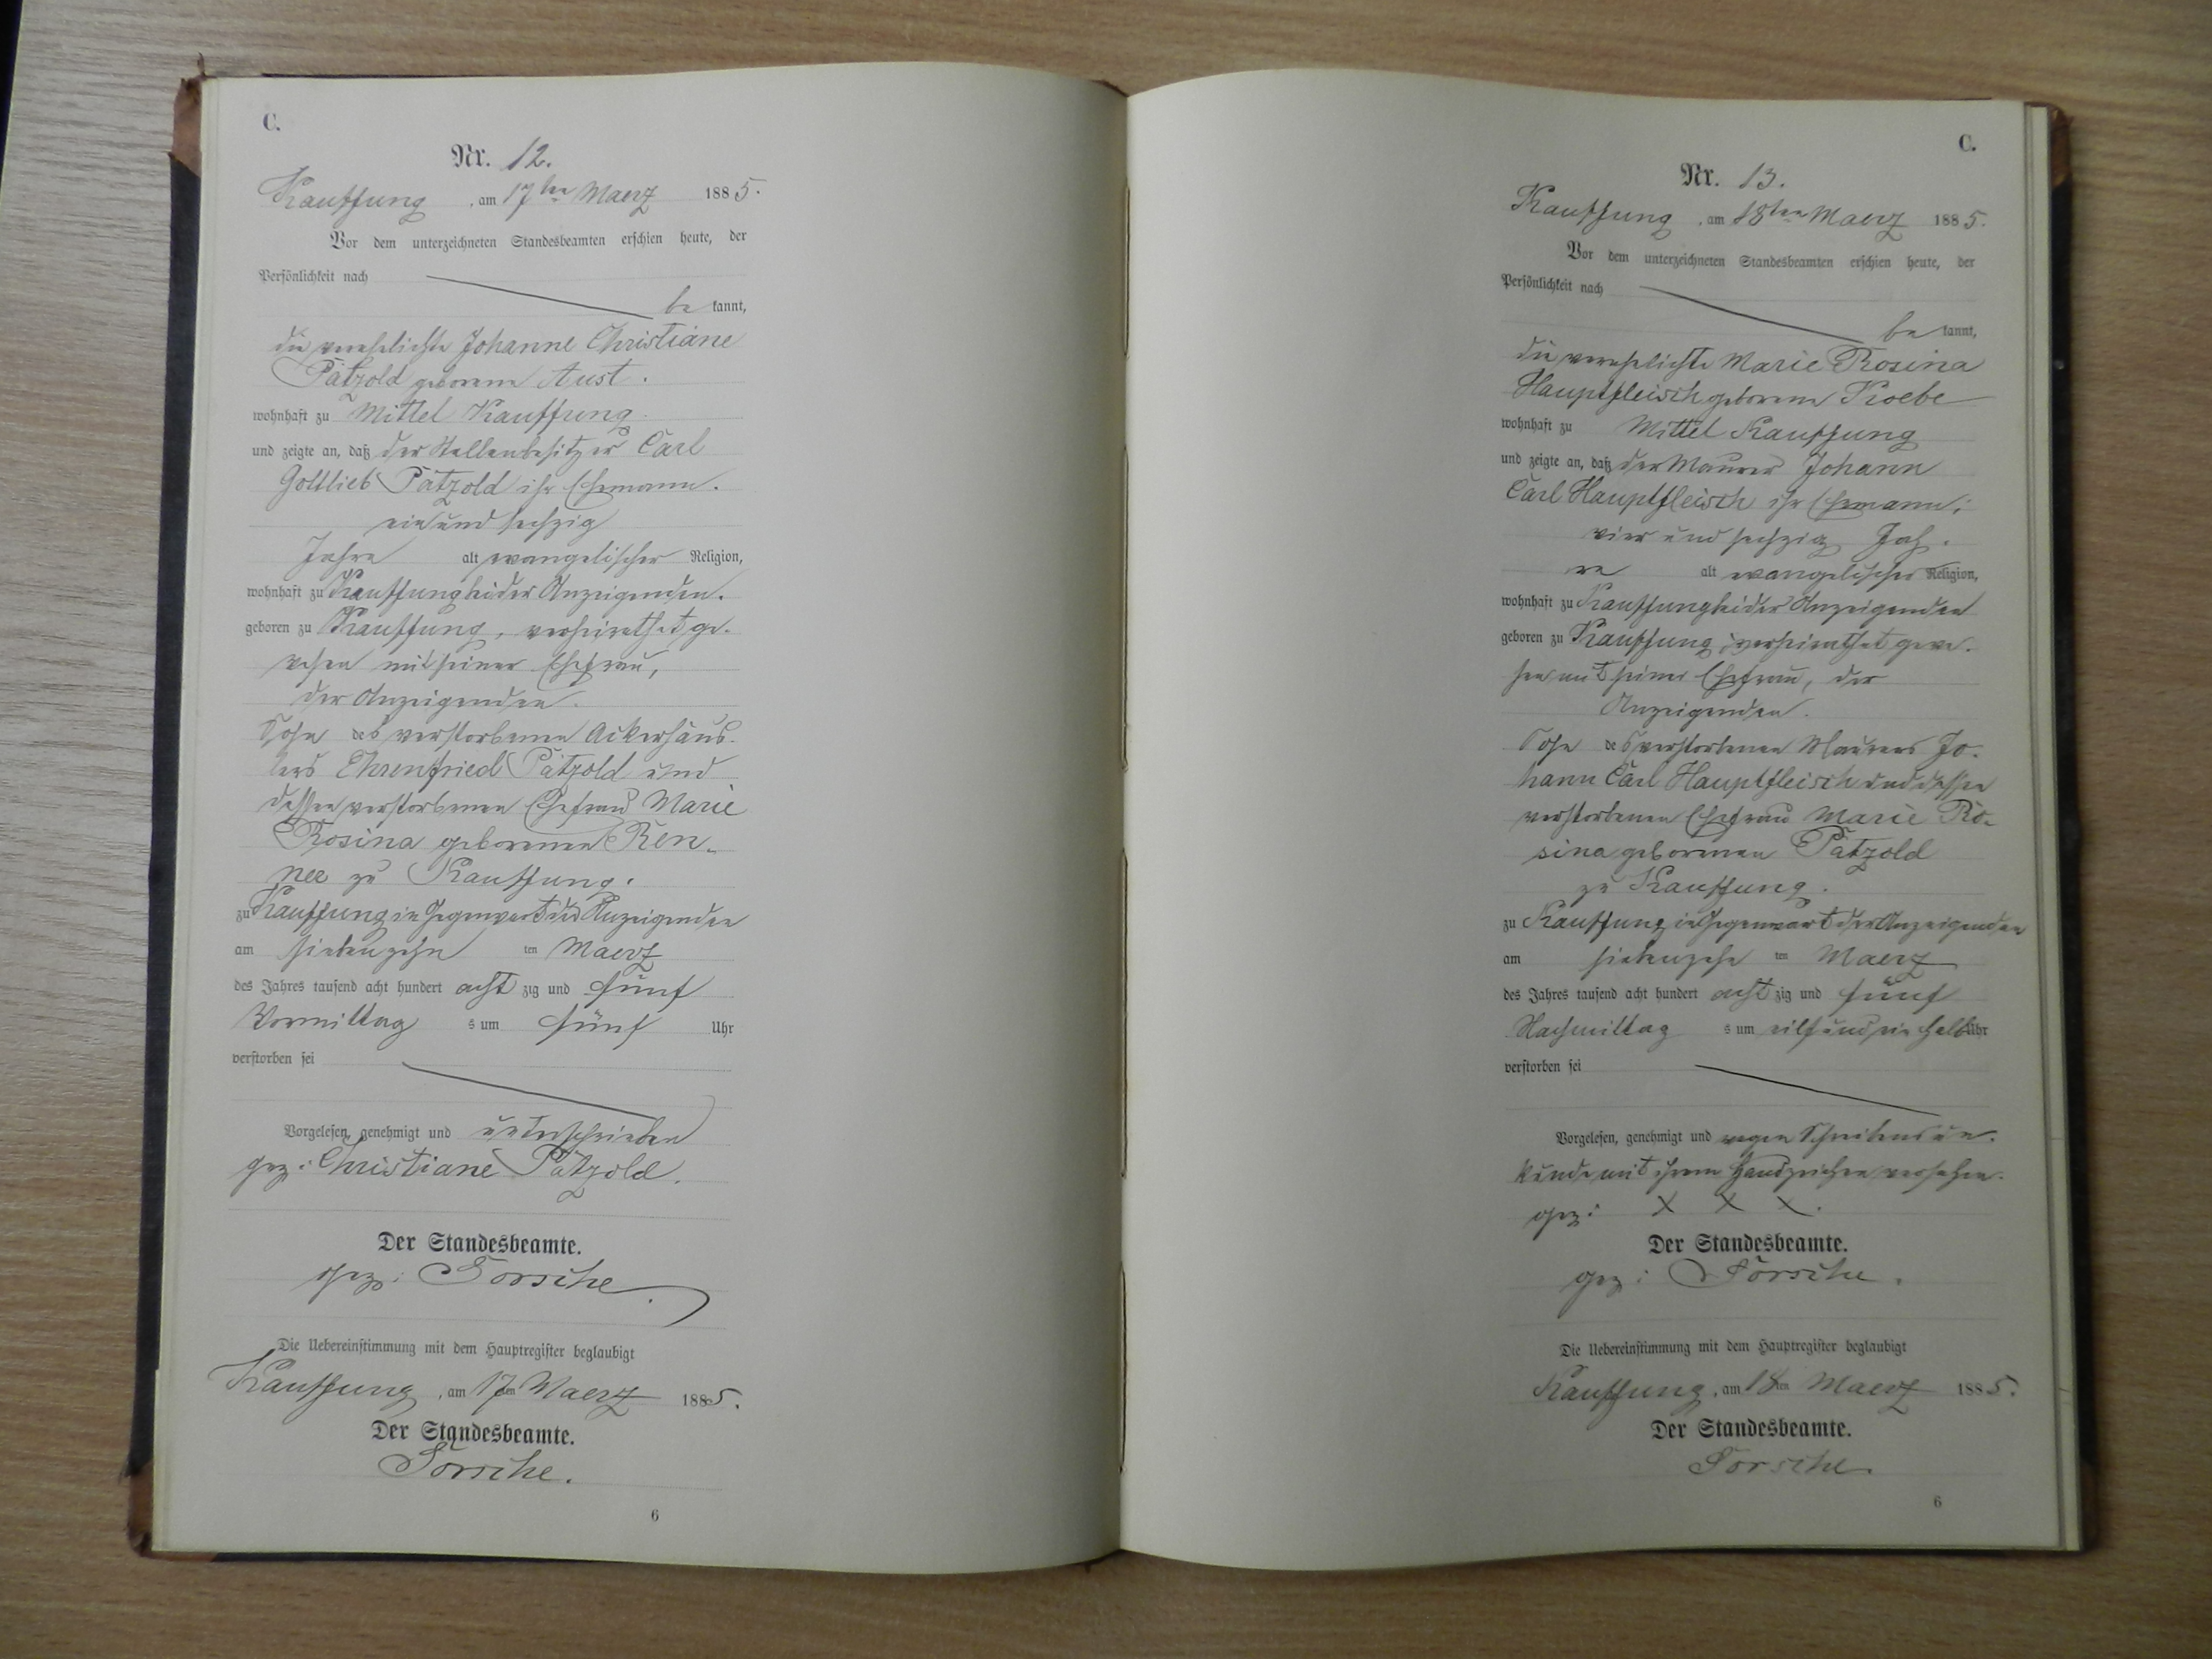 C.
Nr. 12.
Kauffung, am 17ten Maerz 1885.
Vor dem unterzeichneten Standesbeamten erschien heute, der
Persönlichkeit nach
bekannt,
die verehelichte Johanne Christiane
Pätzold geborene Aust.
wohnhaft zu Mittel Kauffung
und zeigte an, daß der Stellenbesitzer Carl
Gottlieb Pätzold ihr Ehemann.
ein und sechzig
Jahre alt evangelischer Religion,
wohnhaft zu Kauffung bei der Anzeigenden.
geboren zu Kauffung, verheirathet ge-
wesen mit seiner Ehefrau,
der Anzeigenden.
Sohn des verstorbenen Ackerhäus-
lers Ehrenfried Pätzold und
dessen verstorbenen Ehefrau Marie
Rosina geborenen Ren-
ner zu Kauffung.
zu Kauffung in Gegenwart der Anzeigenden
am siebenzehn ten Maerz
des Jahres tausend acht hundert acht zig und fünf
Vormittags um fünf Uhr
verstorben sei
Vorgelesen, genehmigt und unterschrieben
gez: Christiane Pätzold.
Der Standesbeamte.
gez: Forsche.
Die Uebereinstimmung mit dem Hauptregister beglaubigt
Kauffung, am 17ten Maerz 1885.
Der Standesbeamte.
Forsche.
6
C.
Nr. 13.
Kauffung, am 18ten Maerz 1885.
Vor dem unterzeichneten Standesbeamten erschien heute, der
Persönlichkeit nach
bekannt,
die verehelichte Marie Rosina
Hauptfleisch geborene Koebe
wohnhaft zu Mittel Kauffung
und zeigte an, daß der Maurer Johann
Carl Hauptfleisch ihr Ehemann;
vier und sechzig Jah-
re alt evangelischer Religion,
wohnhaft zu Kauffung bei der Anzeigenden
geboren zu Kauffung, verheirathet gewe-
sen mit seiner Ehefrau, der
Anzeigenden.
Sohn des verstorbenen Maurers Jo-
hann Carl Hauptfleisch und dessen
verstorbenen Ehefrau Marie Ro-
sina geborenen Pätzold
zu Kauffung.
zu Kauffung in Gegenwart der Anzeigenden
am siebenzehn ten Maerz
des Jahres tausend acht hundert acht zig und fünf
Nachmittags um eilf und ein halb Uhr
verstorben sei
Vorgelesen, genehmigt und wegen Schreibens un-
kunde mit ihrem Handzeichen versehen.
gez: X X X.
Der Standesbeamte.
gez: Forsche.
Die Uebereinstimmung mit dem Hauptregister beglaubigt
Kauffung, am 18ten Maerz 1885.
Der Standesbeamte.
Forsche
6